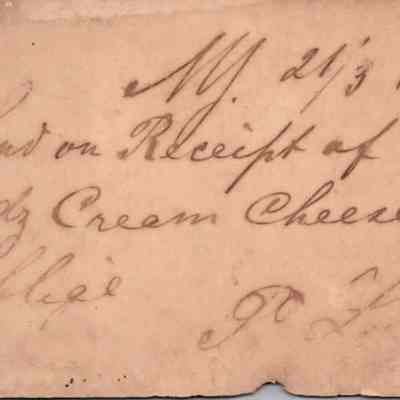 NY. 21/3
end on Receipt of
dz Cream Cheese
blige